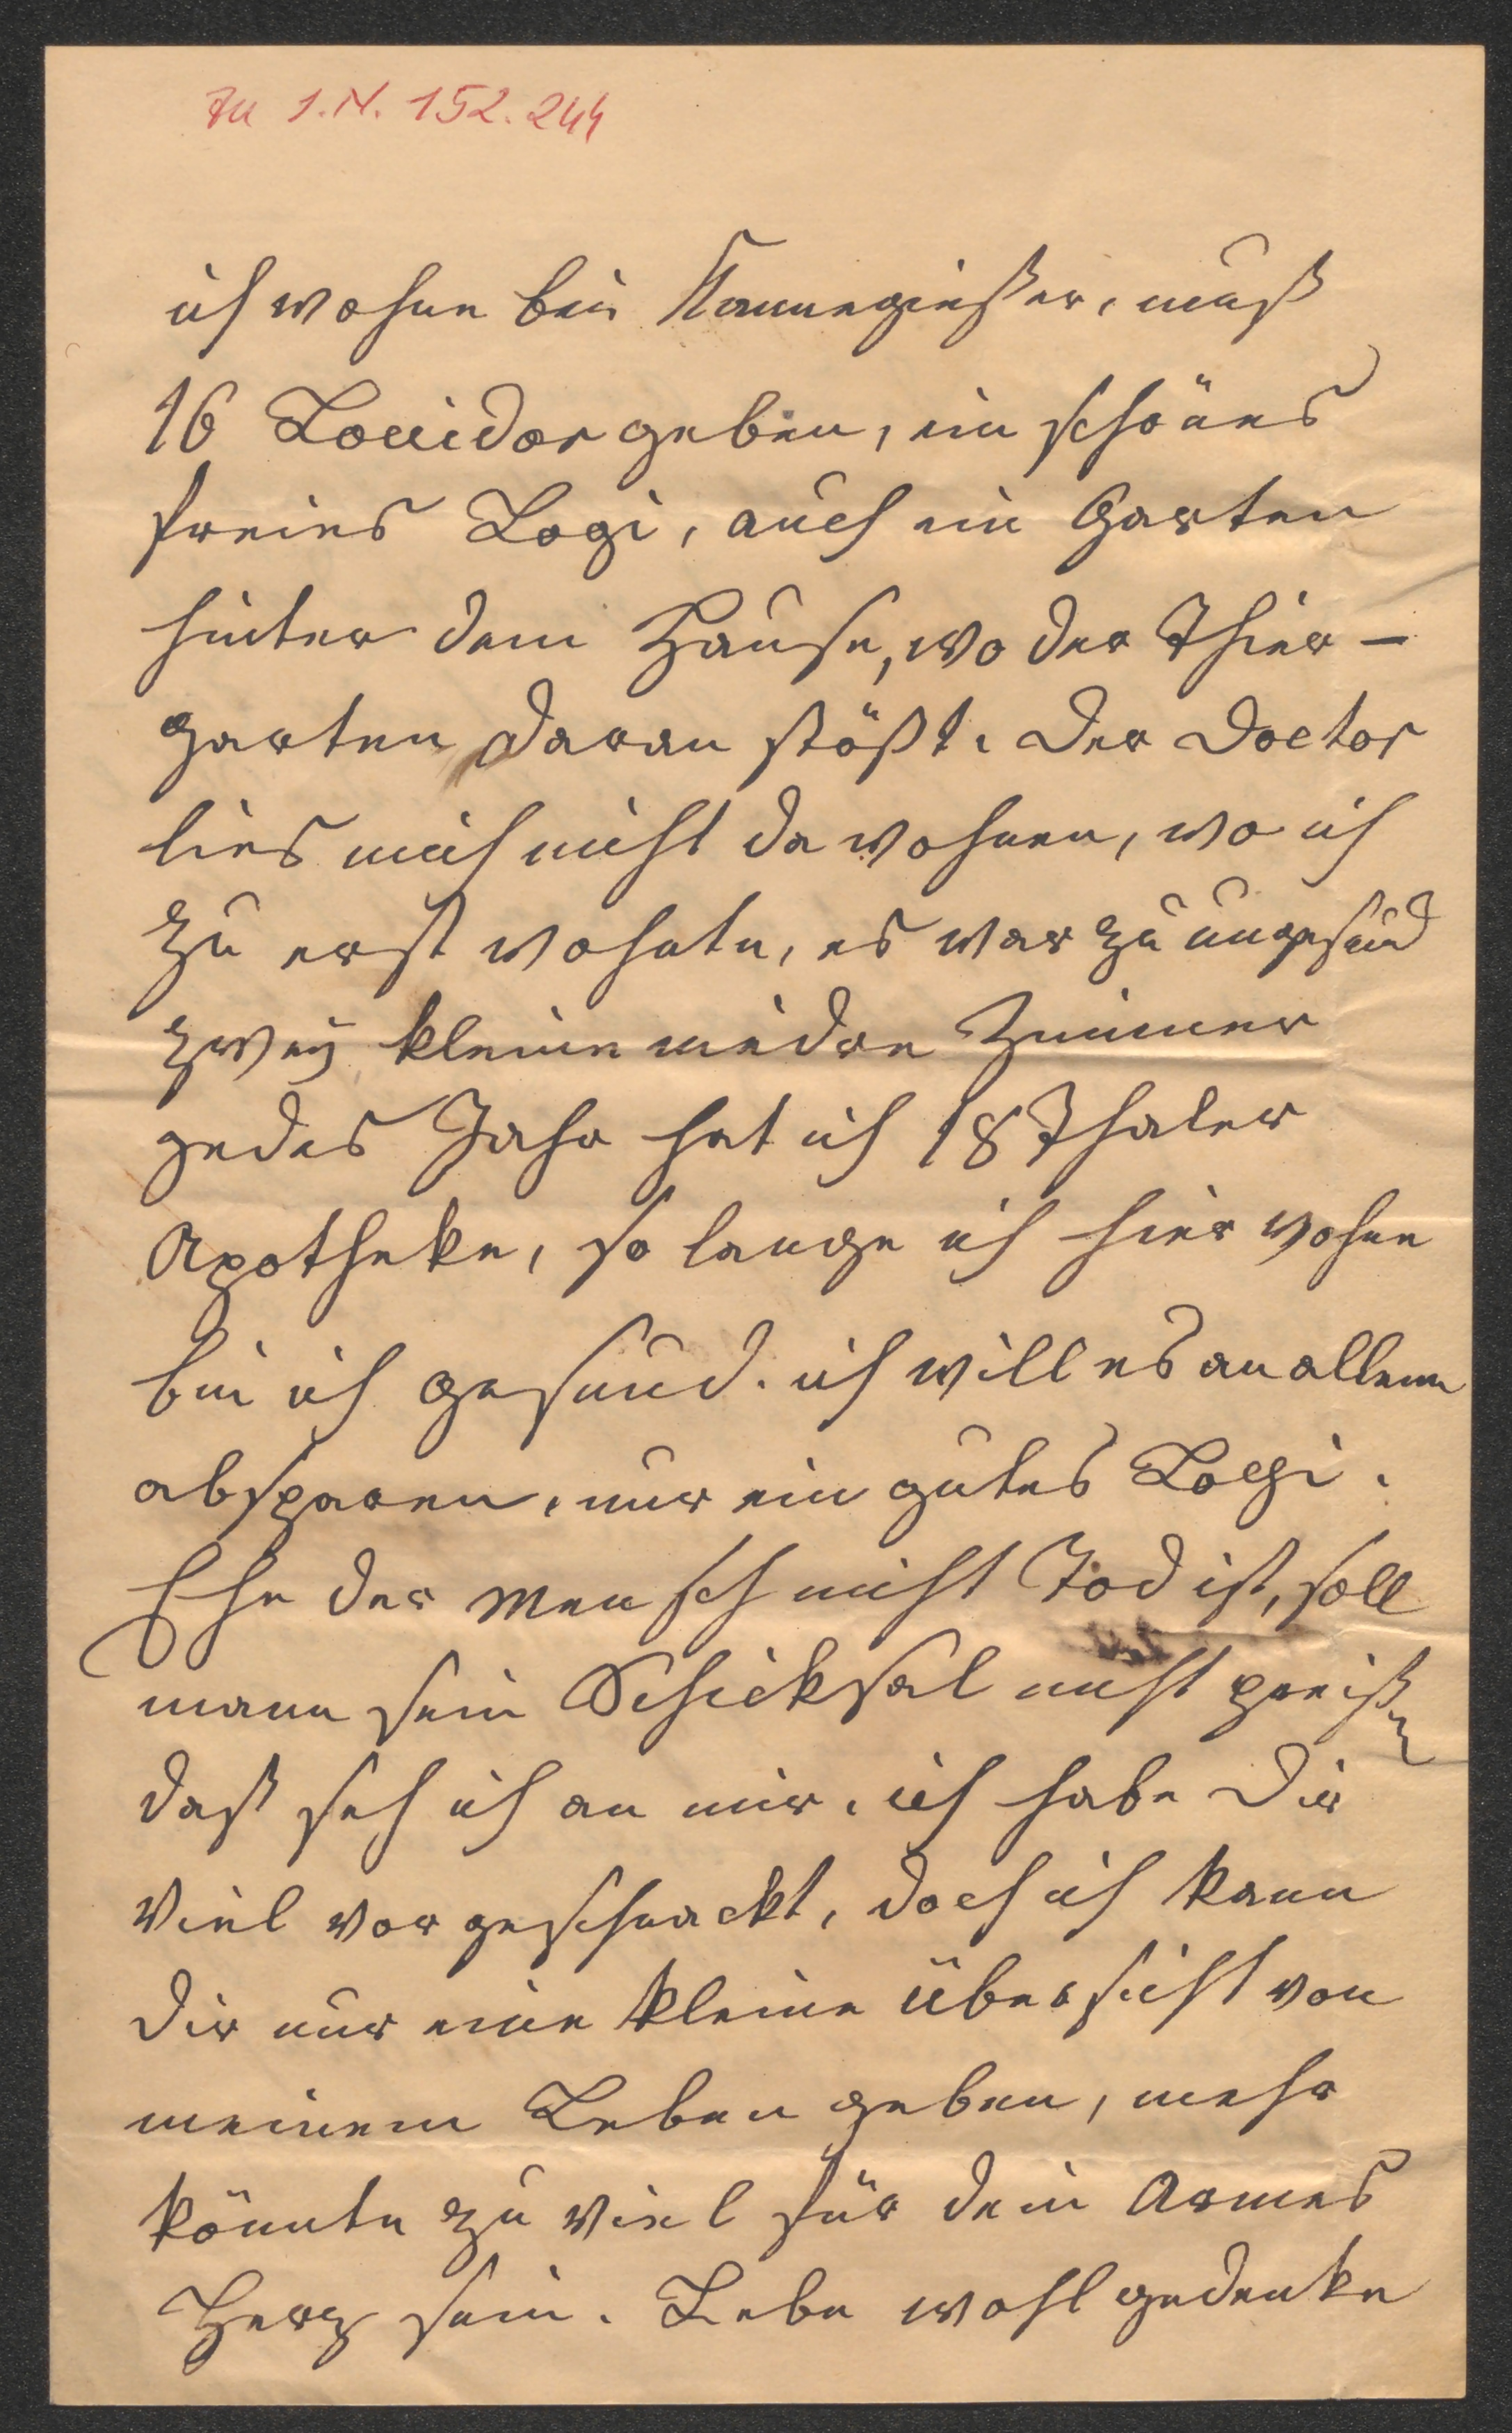 Zu I.N. 152.244
ich wohne bei Kannegießer, muß
16 Louidor geben, ein schönes
freies Logi, auch ein Garten
hinter dem Hause, wo der Thier-
garten daran stößt. Der Doctor
lies mich nicht da wohnen, wo ich
zu erst wohnte, es war zu ungesund
zwey kleine niedre Zimmer
gedes Jahr hat ich 18 Thaler
Apotheke, so lange ich hier wohne
bin ich gesund. ich will es an allem
absparen, nur ein gutes Logi.
Ehe der Mensch nicht Tod ist, soll
mann sein Schicksal nicht preißn
daß seh ich an mir. ich habe Dir
Viel vorgeschnackt, doch ich kann
Dir nur eine kleine übersicht von
meinem Leben geben, mehr
könnte zu Viel für dein Armes
Herz sein. Lebe wohl gedenke